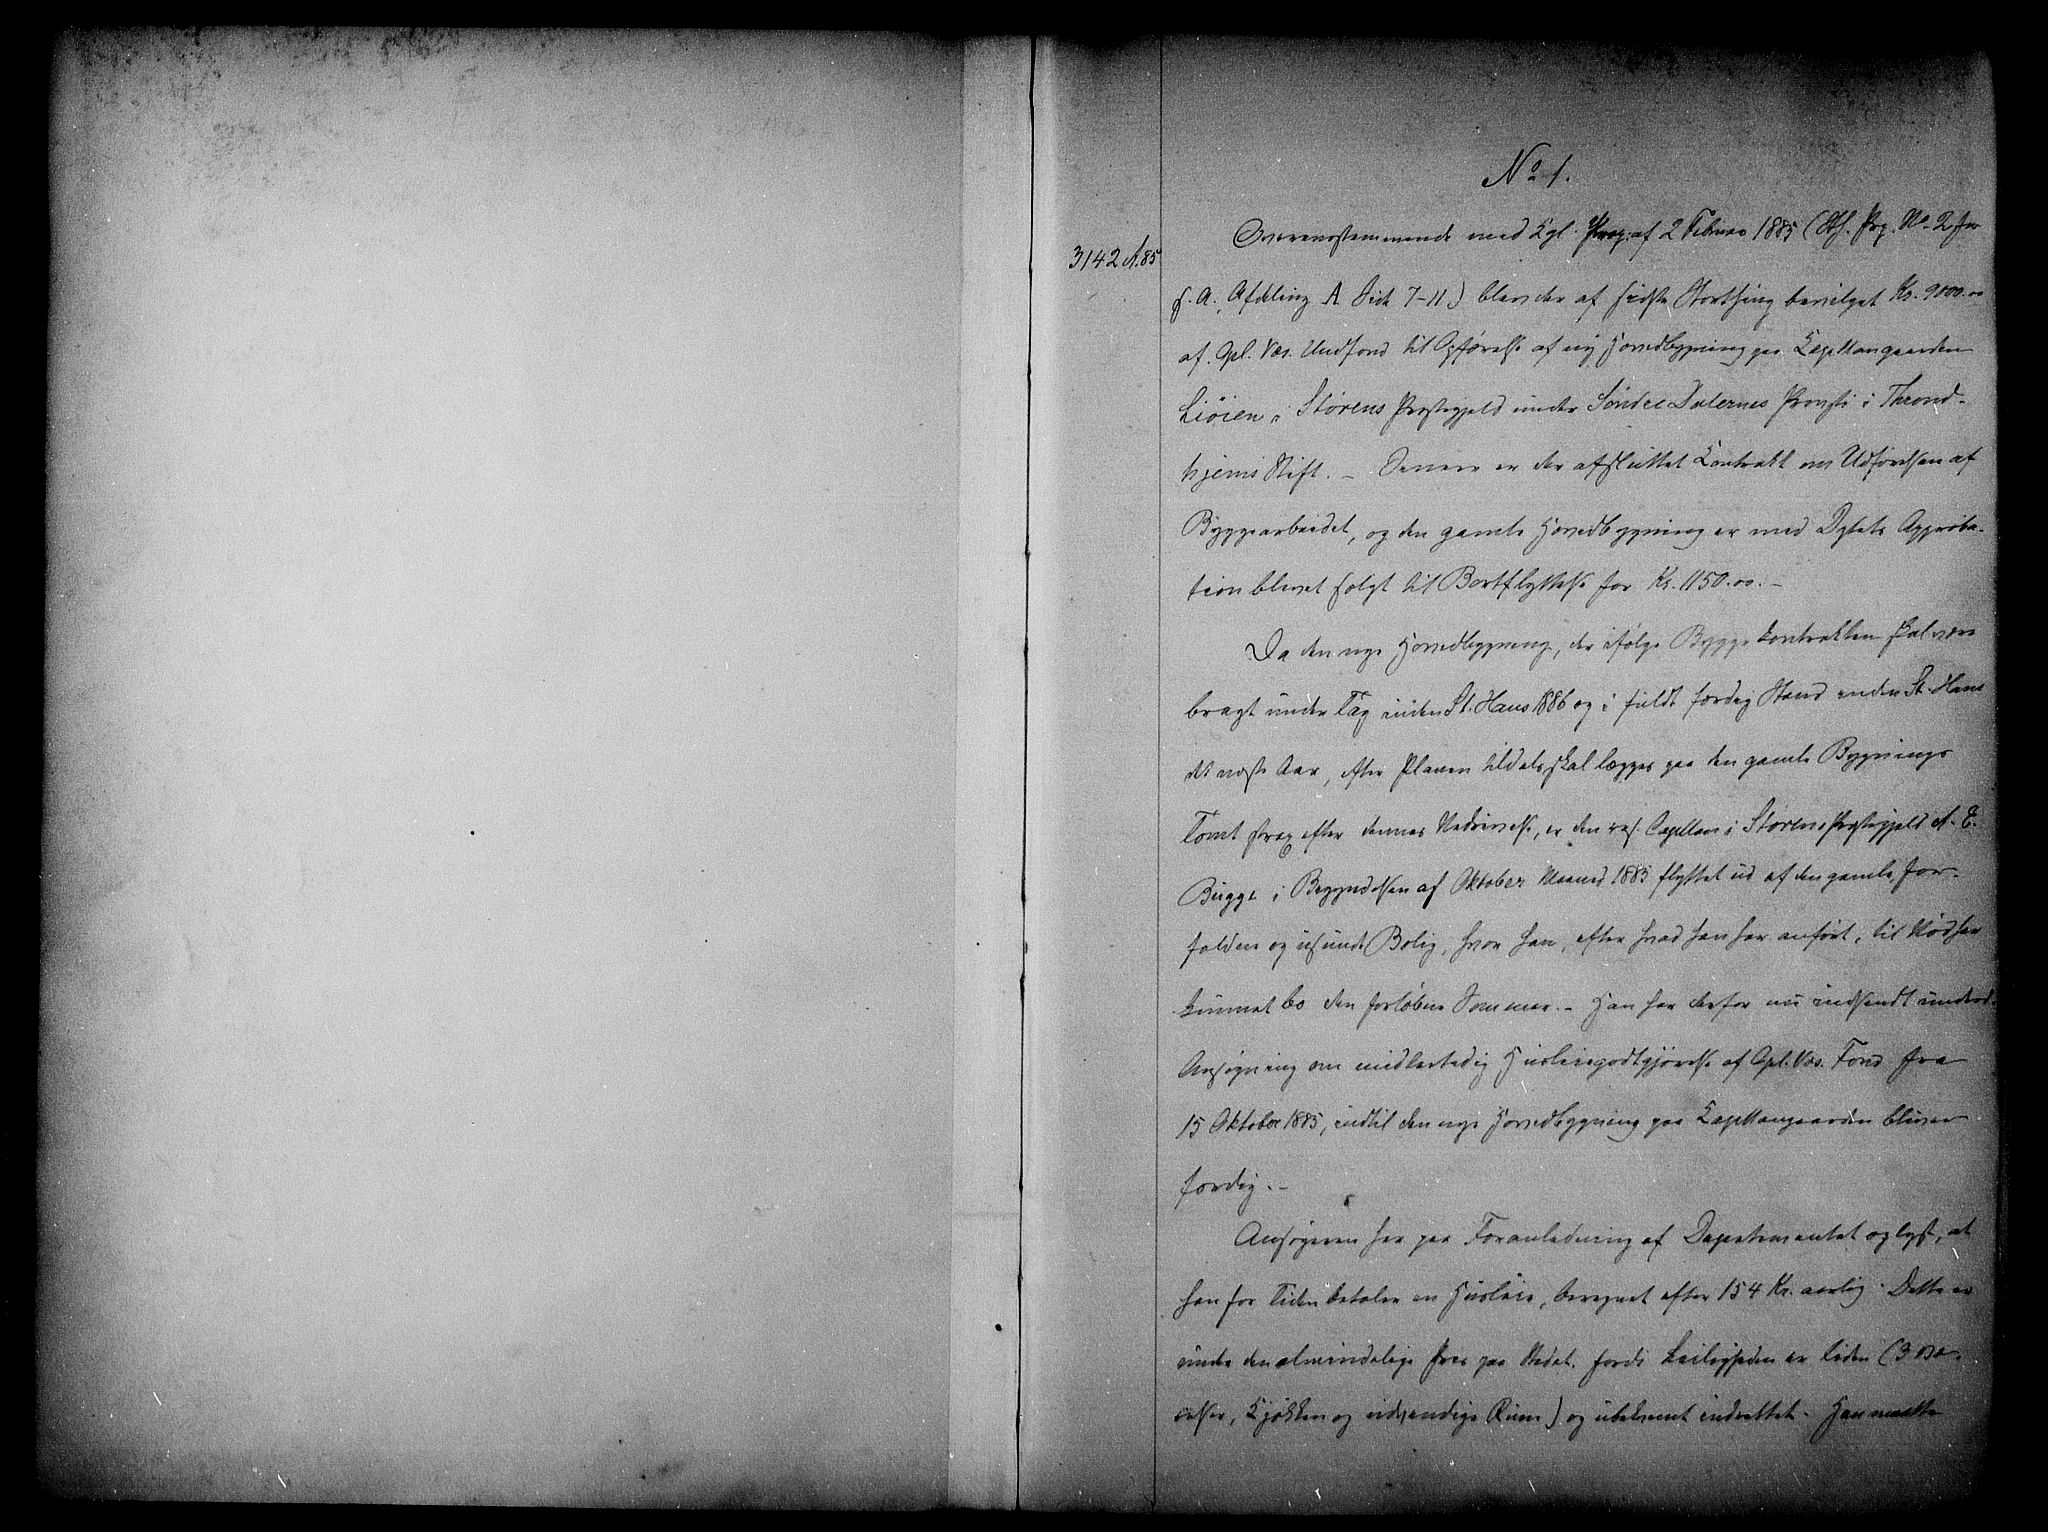 No 1.
3142 A.85
Overensstemmende med Kgl. Prop. af 2 Februar 1885 (Sth. Prp. No. 2 for
s. A. Afdeling A Side 7-11) blev der af sidste Storthing bevilget Kr. 9000.00
af Opl. Væs. Undfond til Opførelse af ny Hovedbygning paa Capellangaarden
Liøien i Størens Præstegjeld under Søndre Dalernes Provsti i Thrond-
hjems Stift. – Senere er der afsluttet Contrakt om Udførelsen af
Byggearbeidet, og den gamle Hovedbygning er med Dptets Approba-
tion blevet solgt til Bortflyttelse for Kr. 1150.00. –
Da den nye Hovedbygning, der ifølge Byggekontrakten skal være
bragt under Tag inden St. Hans 1886 og i fuldt færdig Stand inden St. Hans
det næste Aar, efter Planen tildels skal lægges paa den gamle Bygnings
Tomt strax efter dennes Nedrivelse, er den res. Capellan i Størens Præstegjeld A. E.
Bugge i Begyndelsen af Oktober Maaned 1885 flyttet ud af den gamle for-
faldne og usunde Bolig, hvor han, efter hvad han har anført, til Nød har
kunnet bo den forløbne Sommer. – Han har derfor nu indsendt underd.
Ansøgning om midlertidig Husleiegodtgjørelse af Opl. Væs. Fond fra
15 Oktober 1885, indtil den nye Hovedbygning paa Capellangaarden bliver
færdig. –
Ansøgeren har paa Foranledning af Departementet oplyst, at
han for Tiden betaler en Husleie, beregnet efter 154 Kr. aarlig. Dette er
under den almindelige Pris paa Stedet, fordi Leiligheden er liden (3 Væ-
relser, Kjøkken og nødvendige Rum) og ubekvemt indrettet. Han maatte